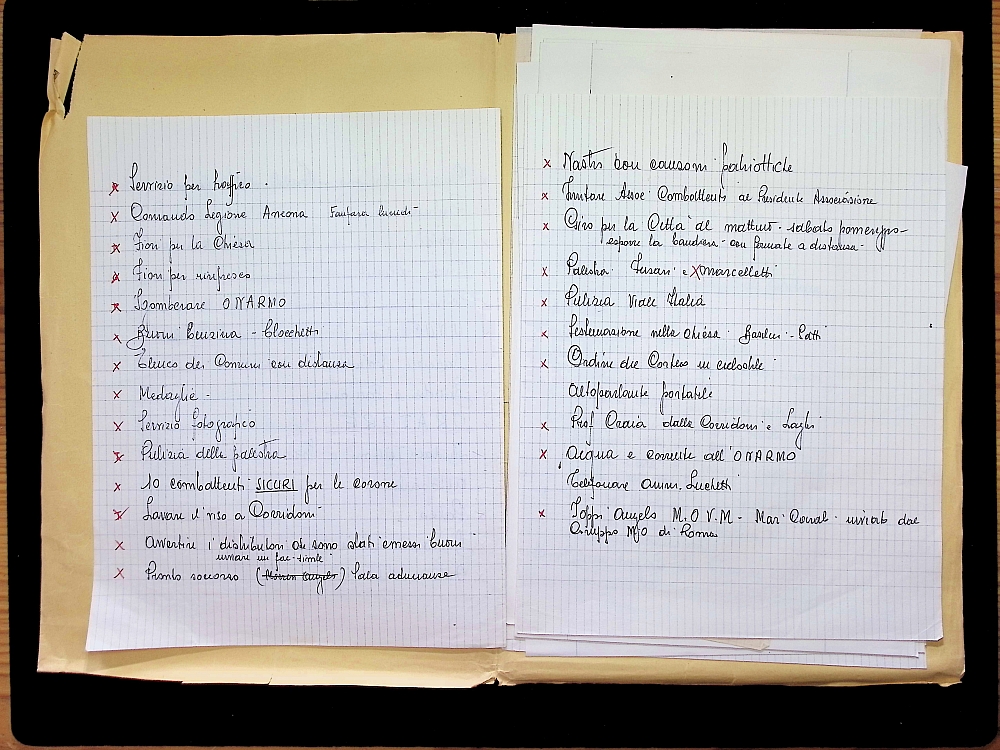 Servizio per traffico.
Comando Legione Ancona Fanfara lunedì
Fiori per la Chiesa
Fiori per rinfresco
Sgomberare ONARMO
Buoni benzina - Blocchetti
Elenco dei Comuni con distanza
Medaglie -
Servizio fotografico
Pulizia della palestra
10 combattenti SICURI per le corone
Lavare il viso a Corridoni
Avvertire i distributori che sono stati emessi buoni
inviare un fac-simile
Pronto soccorso () Sala adunanze
Nastri con canzoni patriottiche
Invitare Assoc. Combattenti al Presidente Associazione
Giro per la Città al mattino - sabato pomeriggio -
esporre la bandiera - con fermate a distanza -
Palestra e Marcelletti
Pulizia Viale Italia
Sistemazione nella chiesa -
Ordine del Corteo in ciclostile
Altoparlante portatile
Prof Craia dalla Corridoni e
Acqua e corrente all'ONARMO
Telefonare Amm. Luchetti
Angelo M.O.V.M - inviato dal
Gruppo MJO di Roma